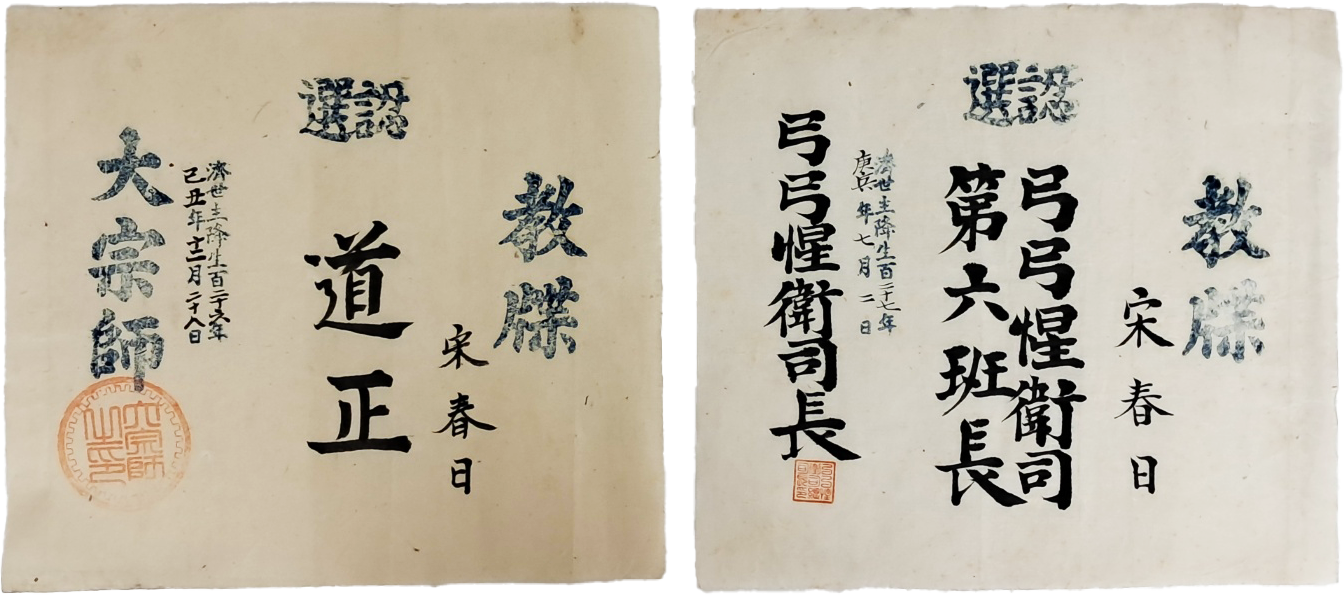 教牒
宋春日
認選
道正
濟世主降生百二十六年
己丑年十二月二十八日
大宗師
大宗師之印
教牒
宋春日
認選
弓弓惺衛司
第六班長
濟世主降生百二十七年
庚寅年七月二日
弓弓惺衛司長